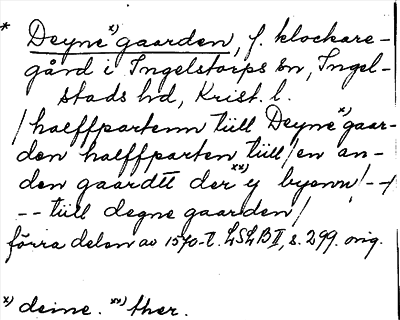 * Deyne x) gaarden, f. klockare-
gård i Ingelstorps sn, Ingel-
stads hd, Krist. l.
/halffpartenn tüll Deyne x) gaar-
den halffparten tüll/en an-
den gaardtt der xx) y byenn/--/
-- tüll degne gaarden/
förra delen av 1570-t. LSLB II, s. 299. orig.
x) deine. xx) ther.